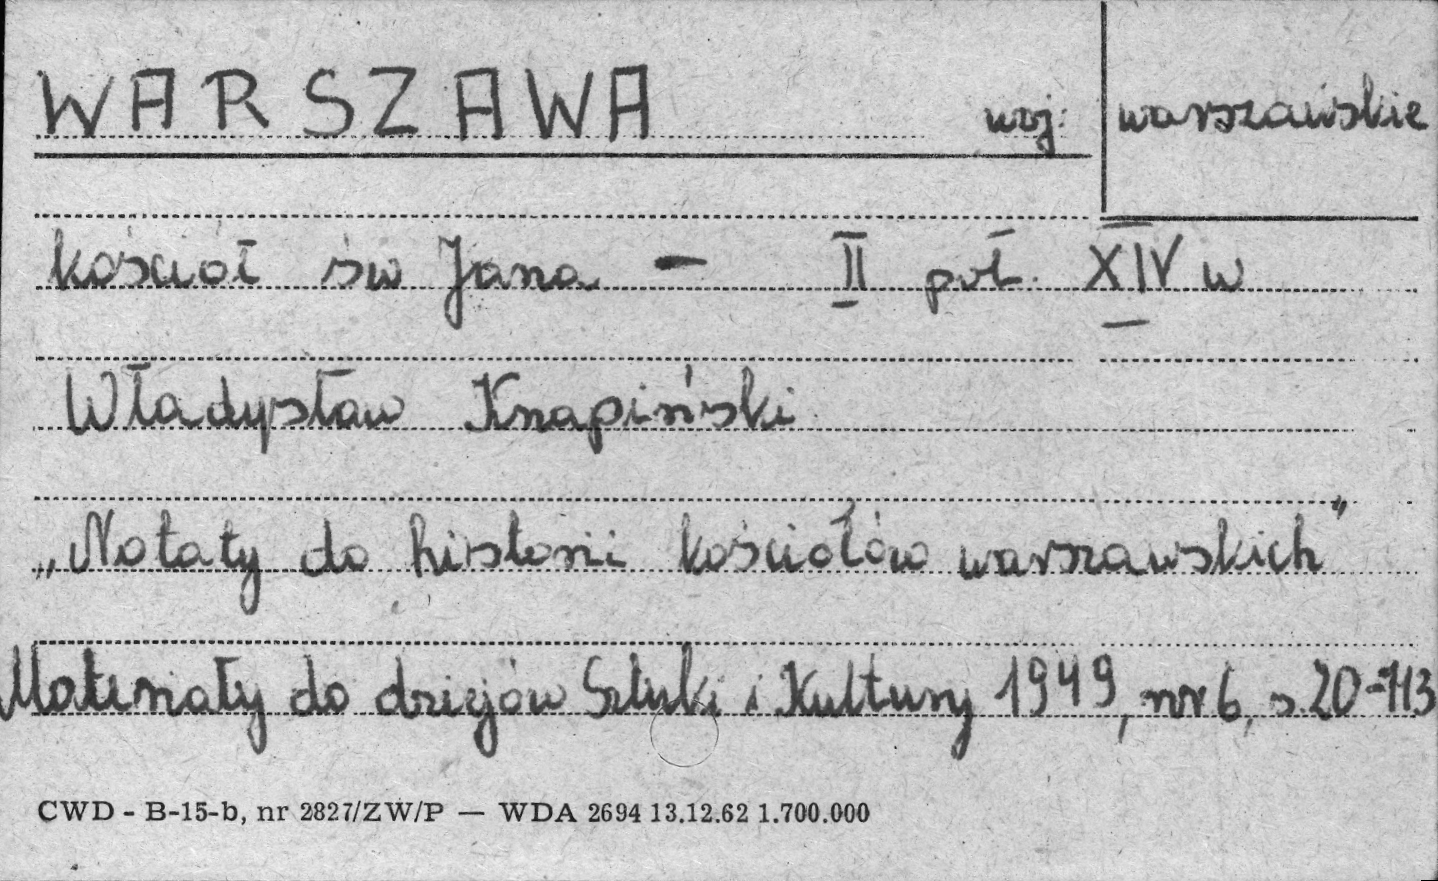 WARSZAWA woj: warszawskie
kościół św Jana – II poł. XIV w
Władysław Knapiński
„Notaty do historii kościołów warszawskich"
Materiały do dziejów Sztuki i Kultury 1949, nr 6, s. 20-113
CWD - B-15-b, nr 2827/ZW/P — WDA 2694 13.12.62 1.700.000